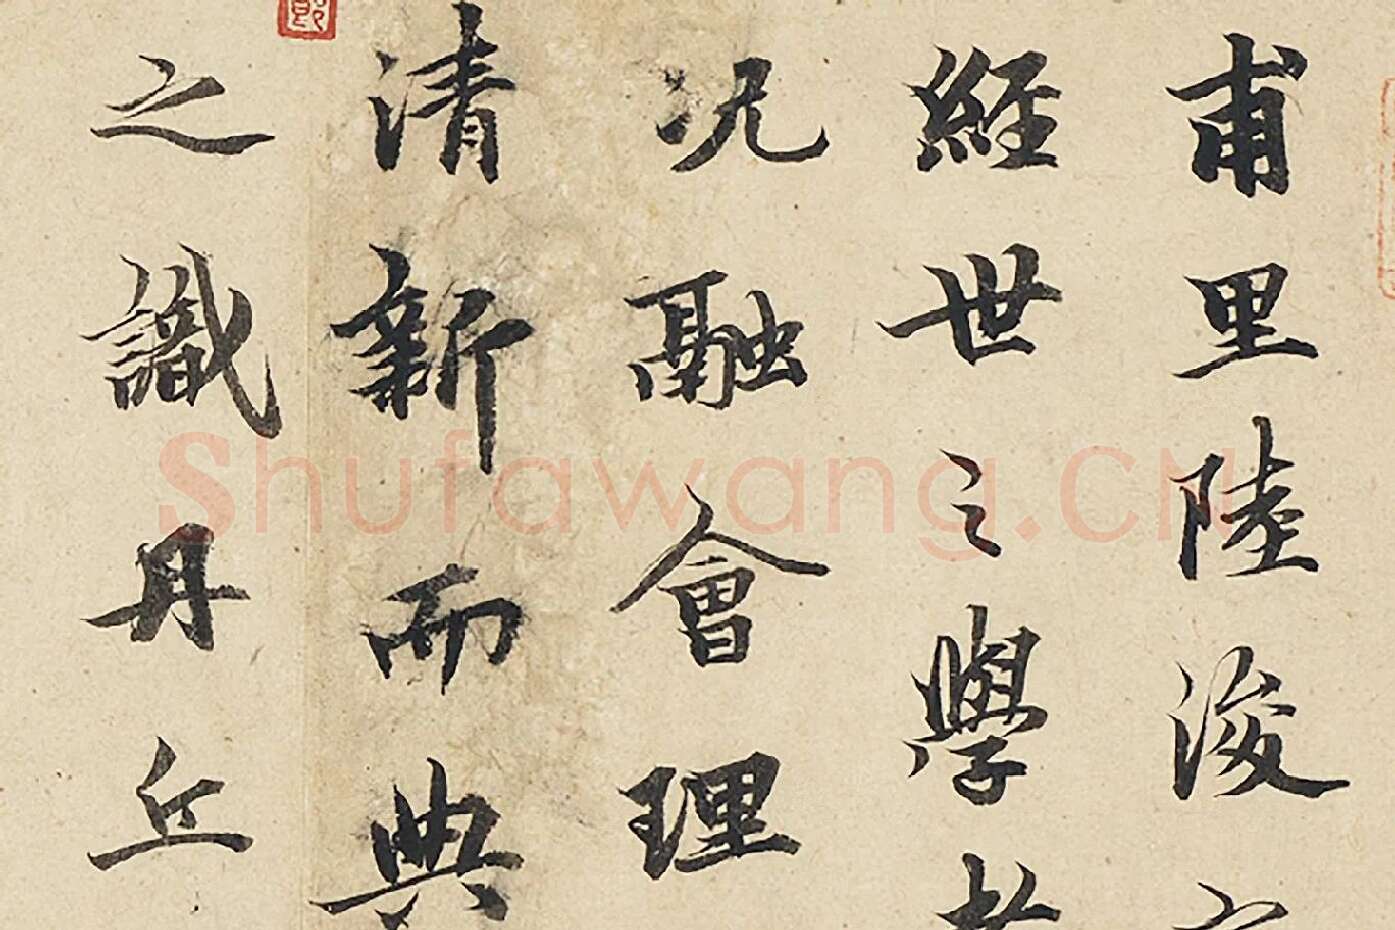 甫里陸浚
經世之學
况融會理
清新而典
之識丹丘
Shufawang.CN